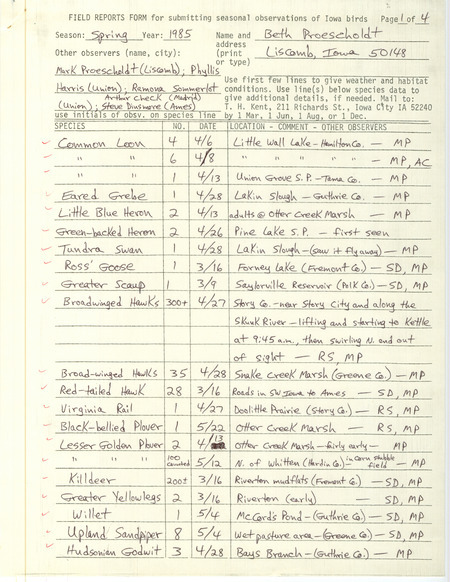 FIELD REPORTS FORM for submitting seasonal observations of Iowa birds Page 1 of 4
Season: Spring Year: 1985 Name and Beth Proescholdt
address
Other observers (name, city): (print Liscomb, Iowa 50148
or type)
Mark Proescholdt (Liscomb); Phyllis
Harris (Union); Ramona Sommerlot
Arthur Check (Madrid)
(Union); Steve Dinsmore (Ames)
Use first few lines to give weather and habitat
conditions. Use line(s) below species data to
give additional details, if needed. Mail to:
T. H. Kent, 211 Richards St., Iowa City IA 52240
use initials of obsv. on species line by 1 Mar, 1 Jun, 1 Aug, or 1 Dec.
SPECIES NO. DATE LOCATION - COMMENT - OTHER OBSERVERS
Common Loon 4 4/6 Little Wall Lake - Hamilton Co. - MP
" " 6 4/8 " " " " - MP, AC
" " 1 4/13 Union Grove S.P. - Tama Co. - MP
Eared Grebe 1 4/28 Lakin Slough - Guthrie Co. - MP
Little Blue Heron 2 4/13 adults @ Otter Creek Marsh - MP
Green-backed Heron 2 4/26 Pine Lake S.P. - first seen
Tundra Swan 1 4/28 Lakin Slough - (saw it fly away) - MP
Ross' Goose 1 3/16 Forney Lake (Fremont Co.) - SD, MP
Greater Scaup 1 3/9 Saylorville Reservoir (Polk Co.) - SD, MP
Broadwinged Hawks 300+ 4/27 Story Co. - near Story City and along the
Skunk River - lifting and starting to Kettle
at 9:45 a.m., then swirling N. and out
of sight - RS, MP
Broad-winged Hawks 35 4/28 Snake Creek Marsh (Greene Co.) - MP
Red-tailed Hawk 28 3/16 Roads in SW Iowa to Ames - SD, MP
Virginia Rail 1 4/27 Doolittle Prairie (Story Co.) - RS, MP
Black-bellied Plover 1 5/22 Otter Creek Marsh - RS, MP
Lesser Golden Plover 2 4/13 Otter Creek Marsh - fairly early - MP
" " " 100 counted 5/12 N. of Whitten (Hardin Co.) - in corn stubble field - MP
Killdeer 200± 3/16 Riverton mudflats (Fremont Co.) - SD, MP
Greater Yellowlegs 2 3/16 Riverton (early) - SD, MP
Willet 1 5/4 McCord's Pond - (Guthrie Co.) - SD, MP
Upland Sandpiper 8 5/4 Wet pasture area - (Greene Co.) - SD, MP
Hudsonian Godwit 3 4/28 Bays Branch - (Guthrie Co.) - MP